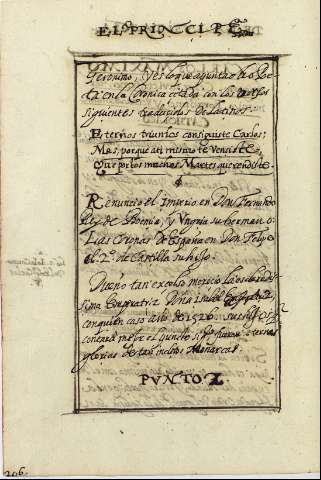 EL PRINCIPE
Geronimo; y es lo que apunto otro Poe-
ta en la Cronica citada con los versos
siguientes traducidos de latinos.
Eternos triunfos conseguiste Carlos:
Mas, porque ati mismo te venciste,
Que por los muchos Martes que rendiste.
Renuncio el Imperio en Don Fernando
Rey de Boemia, y Ungria su hermano:
Las Coronas de España en Don Felipe
el 2º de Castilla su hijo.
tan excelso merecio la
sima Emperatriz Doña Isabel
con quien caso año de 1526.

glorias de tan inclitos Monarcas.
PUNTO
206.